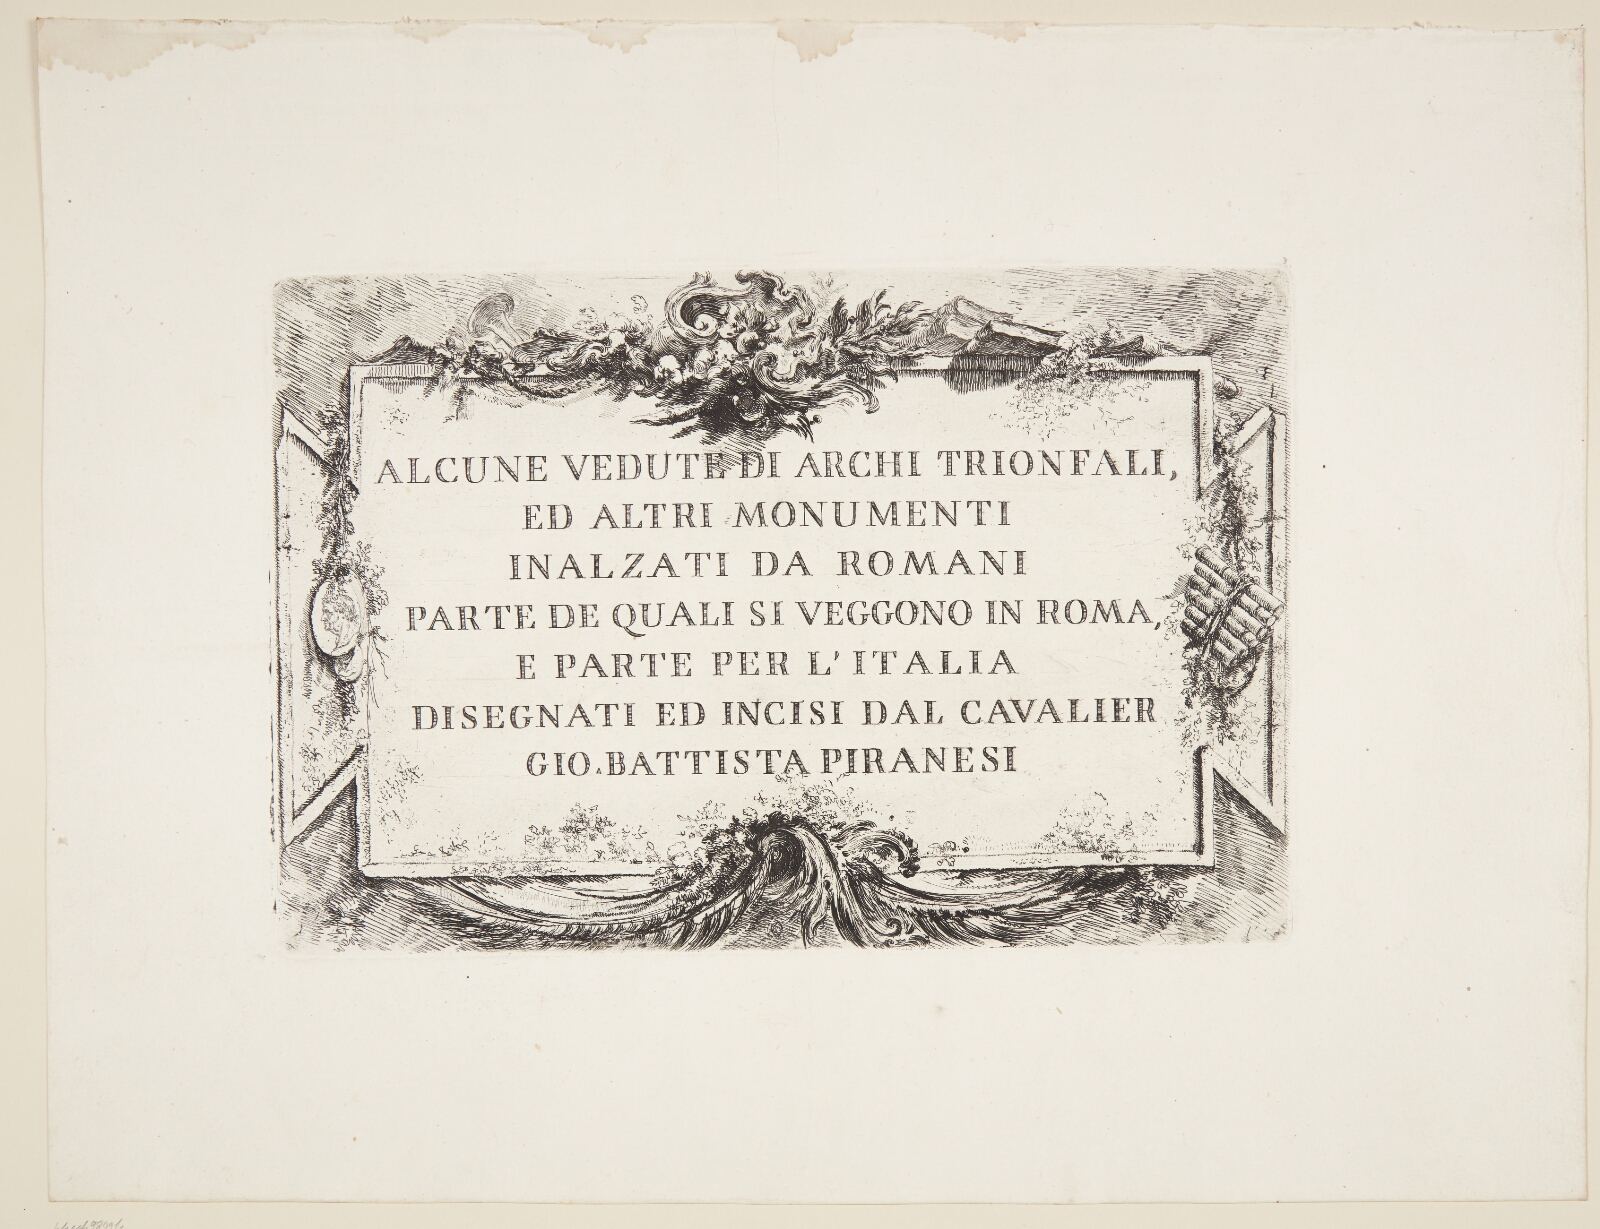 ALCUNE VEDUTE DI ARCHI TRIONFALI,
ED ALTRI MONUMENTI
INALZATI DA ROMANI
PARTE DE QUALI SI VEGGONO IN ROMA,
E PARTE PER L'ITALIA
DISEGNATI ED INCISI DAL CAVALIER
GIO. BATTISTA PIRANESI